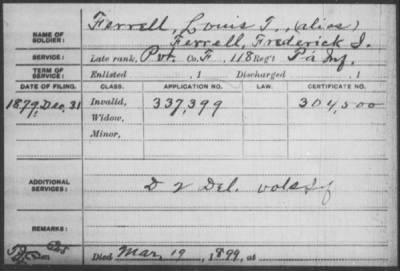 Ferrell, Louis T., (alias)
NAME OF SOLDIER: Ferrell, Frederick I.
SERVICE: Late rank, Pvt. Co. F, 118 Reg't Pa Inf.
TERM OF SERVICE: Enlisted , 1 Discharged , 1
DATE OF FILING. CLASS. APPLICATION NO. LAW. CERTIFICATE NO.
1879, Dec. 31 Invalid, 337,399 304,500
Widow,
Minor,
ADDITIONAL SERVICES: D 2 Del. vols Inf
REMARKS:
Died Mar, 19, 1899, at